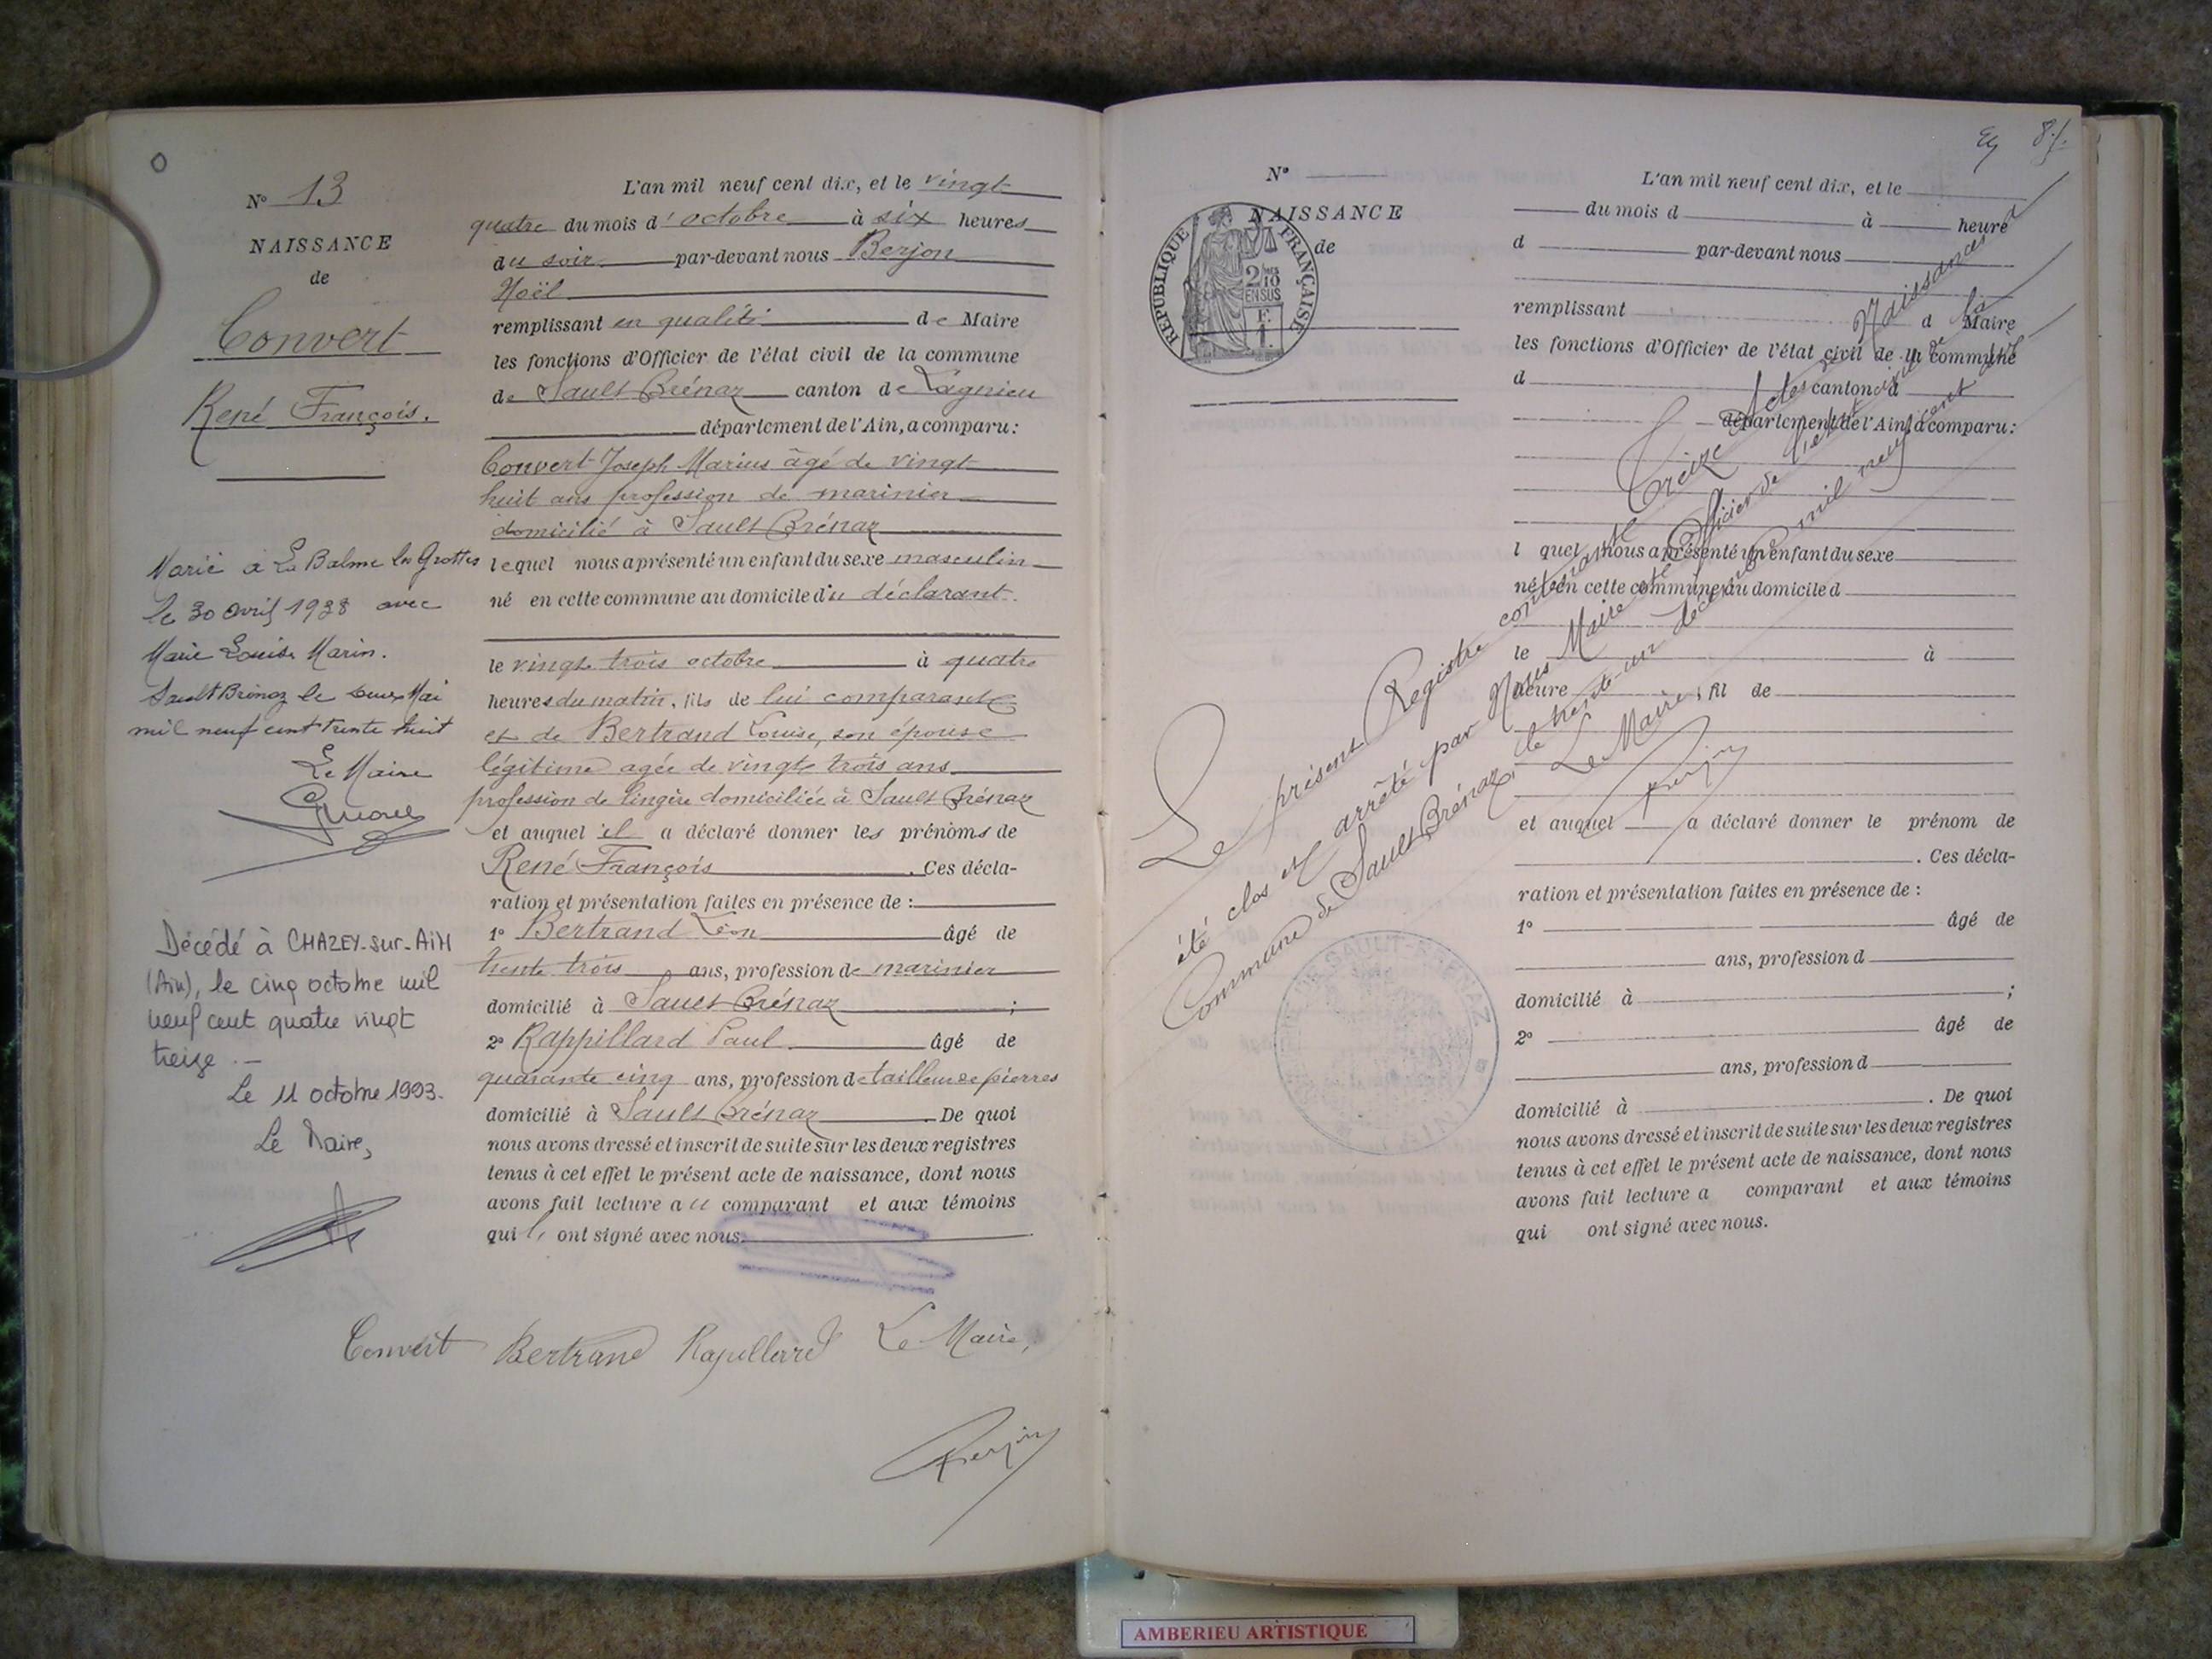 N° 13
NAISSANCE
de
Convert
René François.
Marié à La Balme les Grottes
le 30 avril 1938 avec
Marie Louise Marin.
Sault Brénaz le deux Mai
mil neuf cent trente huit
Le Maire
Décédé à CHAZEY-sur-AIN
(Ain), le cinq octobre mil
neuf cent quatre vingt
treize.-
Le 11 octobre 1993.
Le Maire,
L'an mil neuf cent dix, et le vingt
quatre du mois d'octobre à six heures
du soir par-devant nous Berjon
Noël
remplissant en qualité de Maire
les fonctions d'Officier de l'état civil de la commune
de Sault Brénaz canton de Lagnieu
département de l'Ain, a comparu:
Convert Joseph Marius âgé de vingt
huit ans profession de marinier
domicilié à Sault Brénaz
lequel nous a présenté un enfant du sexe masculin
né en cette commune au domicile du déclarant.
le vingt trois octobre à quatre
heures du matin, fils de lui comparant
et de Bertrand Louise, son épouse
légitime agée de vingt trois ans
profession de lingère domiciliée à Sault Brénaz
et auquel il a déclaré donner les prénoms de
René François. Ces décla-
ration et présentation faites en présence de :
1° Bertrand Léon âgé de
trente trois ans, profession de marinier
domicilié à Sault Brénaz ;
2° Rappillard Paul âgé de
quarante cinq ans, profession de tailleur de pierres
domicilié à Sault Brénaz. De quoi
nous avons dressé et inscrit de suite sur les deux registres
tenus à cet effet le présent acte de naissance, dont nous
avons fait lecture au comparant et aux témoins
qui ont signé avec nous.
Convert Bertrand Rapillard Le Maire,
Berjon
8.
N°
NAISSANCE
de
REPUBLIQUE FRANÇAISE
2/10
EN SUS
F.
1.
L'an mil neuf cent dix, et le
du mois d à heure
d par-devant nous
remplissant d Maire
les fonctions d'Officier de l'état civil de la commune
d canton d
département de l'Ain, a comparu:
l quel nous a présenté un enfant du sexe
né en cette commune au domicile d
le à
heure , fil de
et auquel a déclaré donner le prénom de
. Ces décla-
ration et présentation faites en présence de :
1° âgé de
ans, profession d
domicilié à ;
2° âgé de
ans, profession d
domicilié à . De quoi
nous avons dressé et inscrit de suite sur les deux registres
tenus à cet effet le présent acte de naissance, dont nous
avons fait lecture a comparant et aux témoins
qui ont signé avec nous.
Le présent Registre contenant treize Actes de Naissances a
été clos et arrêté par Nous Maire Officier de l'état civil de la
Commune de Sault Brénaz, le trente-un décembre mil neuf cent dix
Le Maire,
Berjon
AMBERIEU ARTISTIQUE